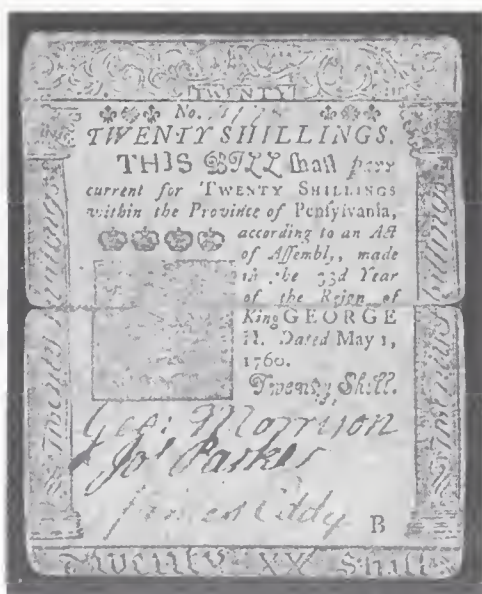 TWENTY
No.
TWENTY SHILLINGS.
THIS BILL shall pass
current for TWENTY SHILLINGS
within the Province of Pensylvania,
according to an Act
of Assembly, made
in the 33d Year
of the Reign of
King GEORGE
II. Dated May 1,
1760.
Twenty Shill.
Geo: Morrison
Jos Parker
James Eddy
B
Twenty XX Shill
Twenty Shillings
Twenty Shillings